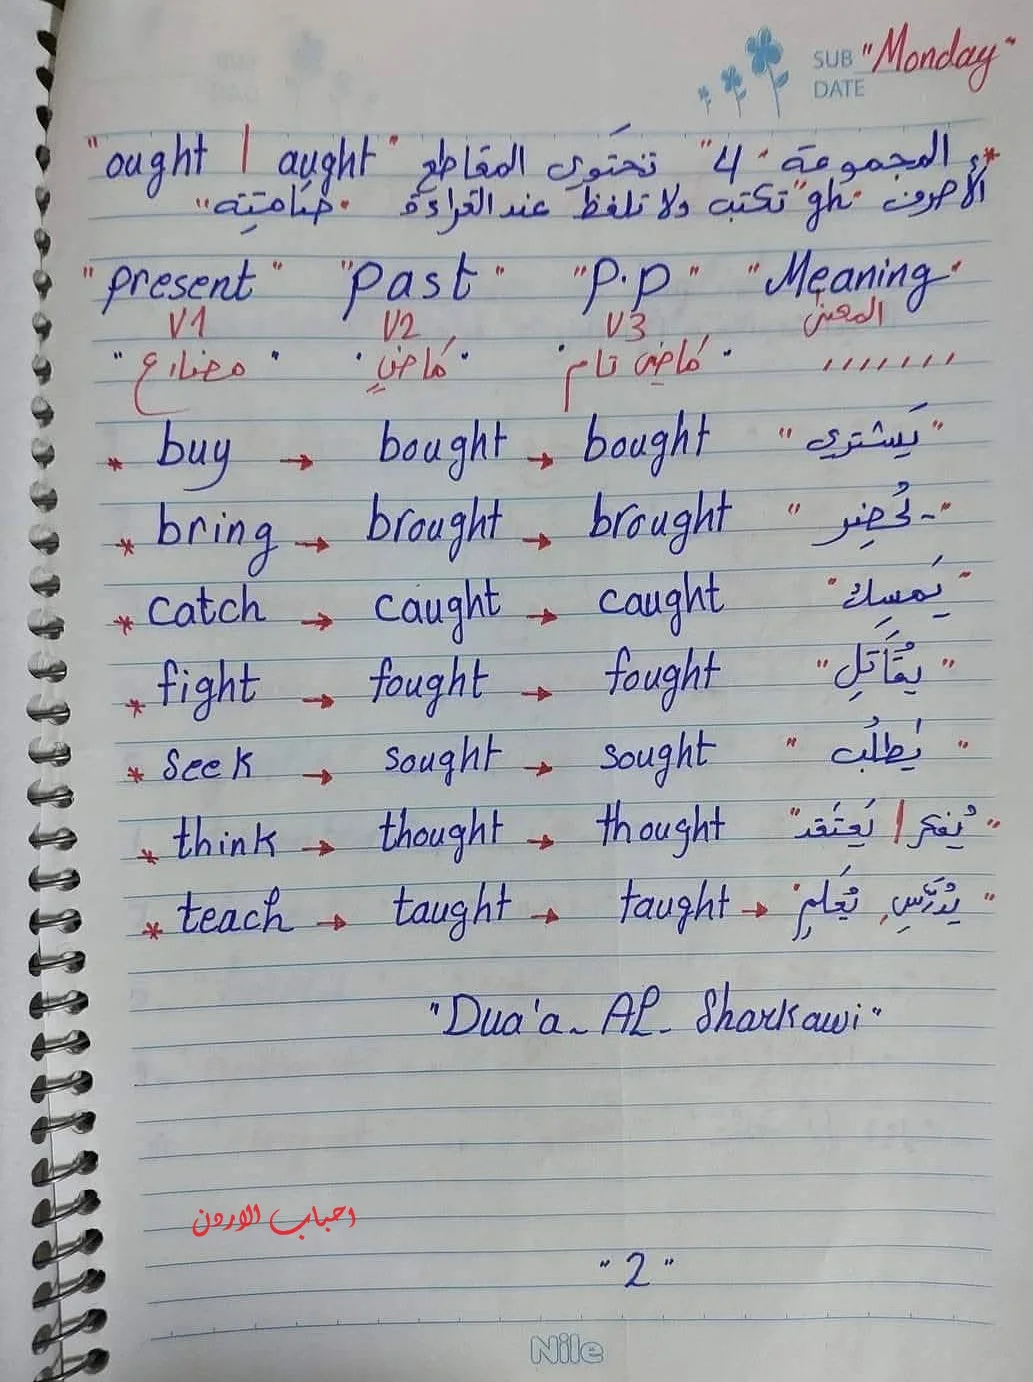 SUB "Monday"
DATE
* المجموعة "4" تحتوي المقاطع "ought | aught"
الأحرف "gh" تكتب ولا تلفظ عند القراءة "صامتة"
"present" "past" "p.p" "Meaning"
V1 V2 V3 المعنى
"مضارع" "ماضٍ" "ماضي تام" ,,,,,,,
* buy → bought → bought "يَشتري"
* bring → brought → brought "يُحضِر"
* catch → caught → caught "يَمسِك"
* fight → fought → fought "يُقَاتِل"
* seek → sought → sought "يَطلُب"
* think → thought → thought "يُفكر | يَعتَقد"
* teach → taught → taught → "يُدَرِّسِ, يُعَلِمِ"
"Dua'a - AL - Sharkawi"
احباب الاردن
"2"
Nile